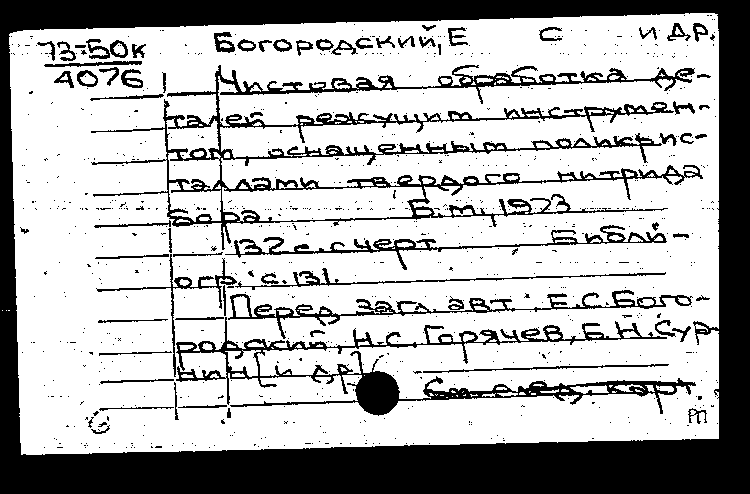 73-50к Богородский, Е С и др.
4076
Чистовая обработка де-
талей режущим инструмен-
том, оснащенным поликрис-
таллами твердого нитрида
бора. Б.м., 1973.
132 с. с черт. Библи-
огр.: с. 131.
Перед загл. авт.: Е.С. Бого-
родский, Н.С. Горячев, Б.Н. Сур-
нин [и др]
См. след. карт.
m